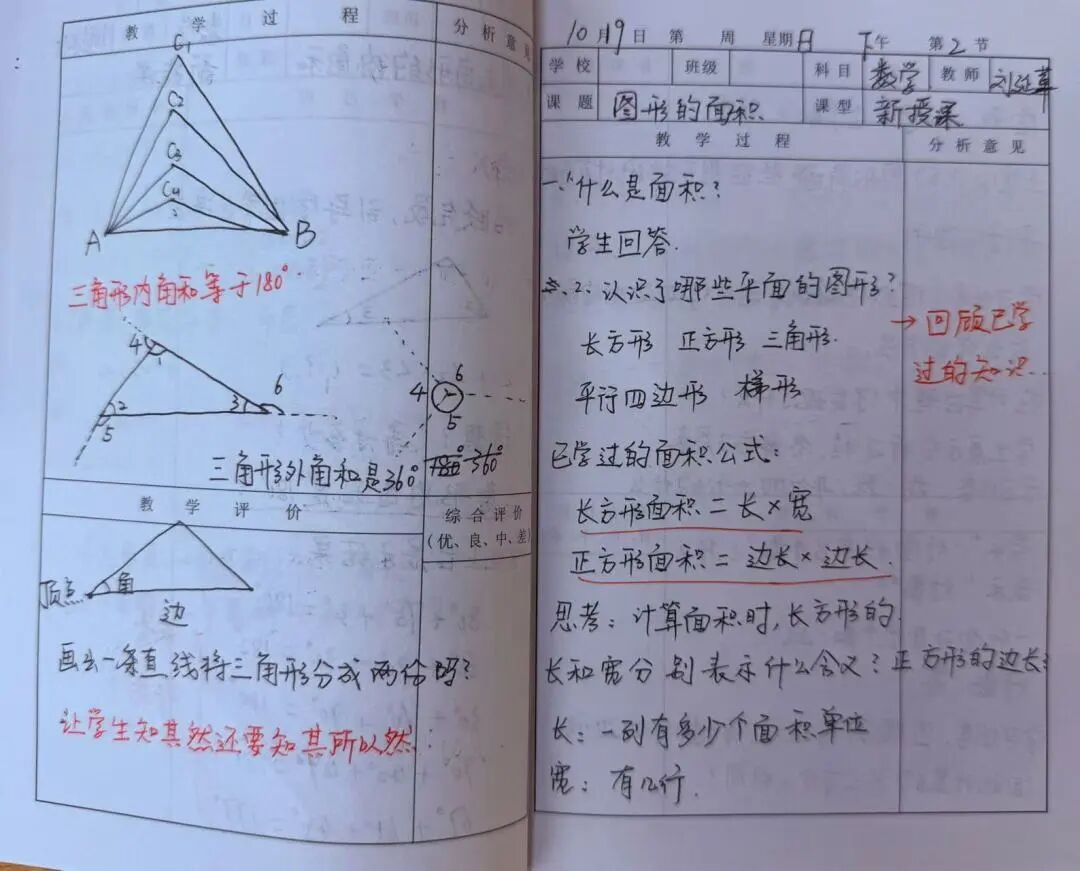 教 学 过 程
分 析 意 见
C1
C2
C3
C4
A
B
三角形内角和等于180°.
4
1
2
3
6
5
4
6
5
三角形外角和是360°
360°
教 学 评 价
综 合 评 价
(优、良、中、差)
顶点
角
边
画去一条直线将三角形分成两份吗?
让学生知其然还要知其所以然.
10月9日 第 周 星期日 下午 第2节
学 校
班级
科目 数学
教师
课 题 图形的面积
课型 新授课
教 学 过 程
分 析 意 见
一、什么是面积?
学生回答.
2.认识了哪些平面的图形?
长方形 正方形 三角形.
平行四边形 梯形
→ 回顾已学
过的知识.
已学过的面积公式:
长方形面积=长×宽
正方形面积=边长×边长.
思考:计算面积时,长方形的
长和宽分别表示什么含义?正方形的边长?
长:一列有多少个面积单位
宽:有几行.